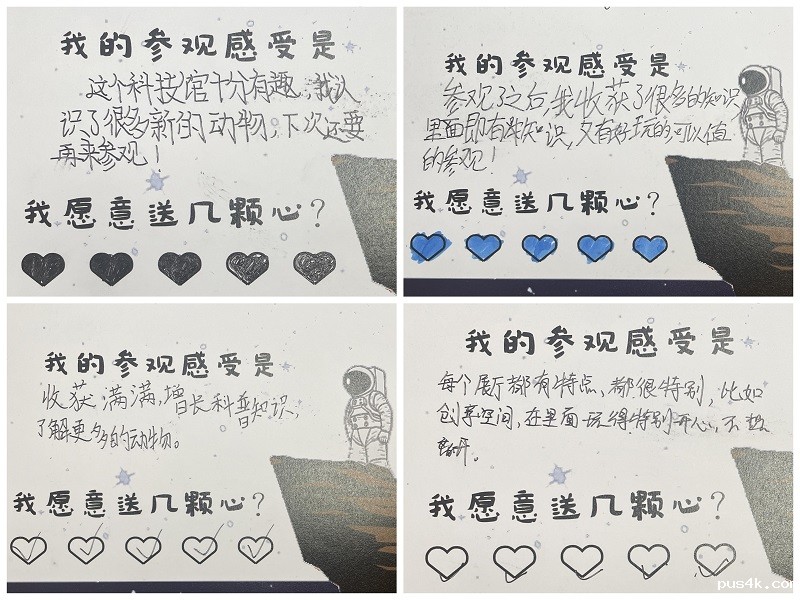 我的参观感受是
这个科技馆十分有趣，我认
识了很多新的动物，下次还要
再来参观！
我愿意送几颗心？
我的参观感受是
参观了之后，我收获了很多的知识
里面即有知识，又有好玩的可以值
的参观！
我愿意送几颗心？
我的参观感受是
收获满满，增长科普知识，
了解更多的动物。
我愿意送几颗心？
我的参观感受是
每个展厅都有特点，都很特别，比如
创享空间，在里面玩得特别开心，不想
离开。
我愿意送几颗心？
pus4k.com